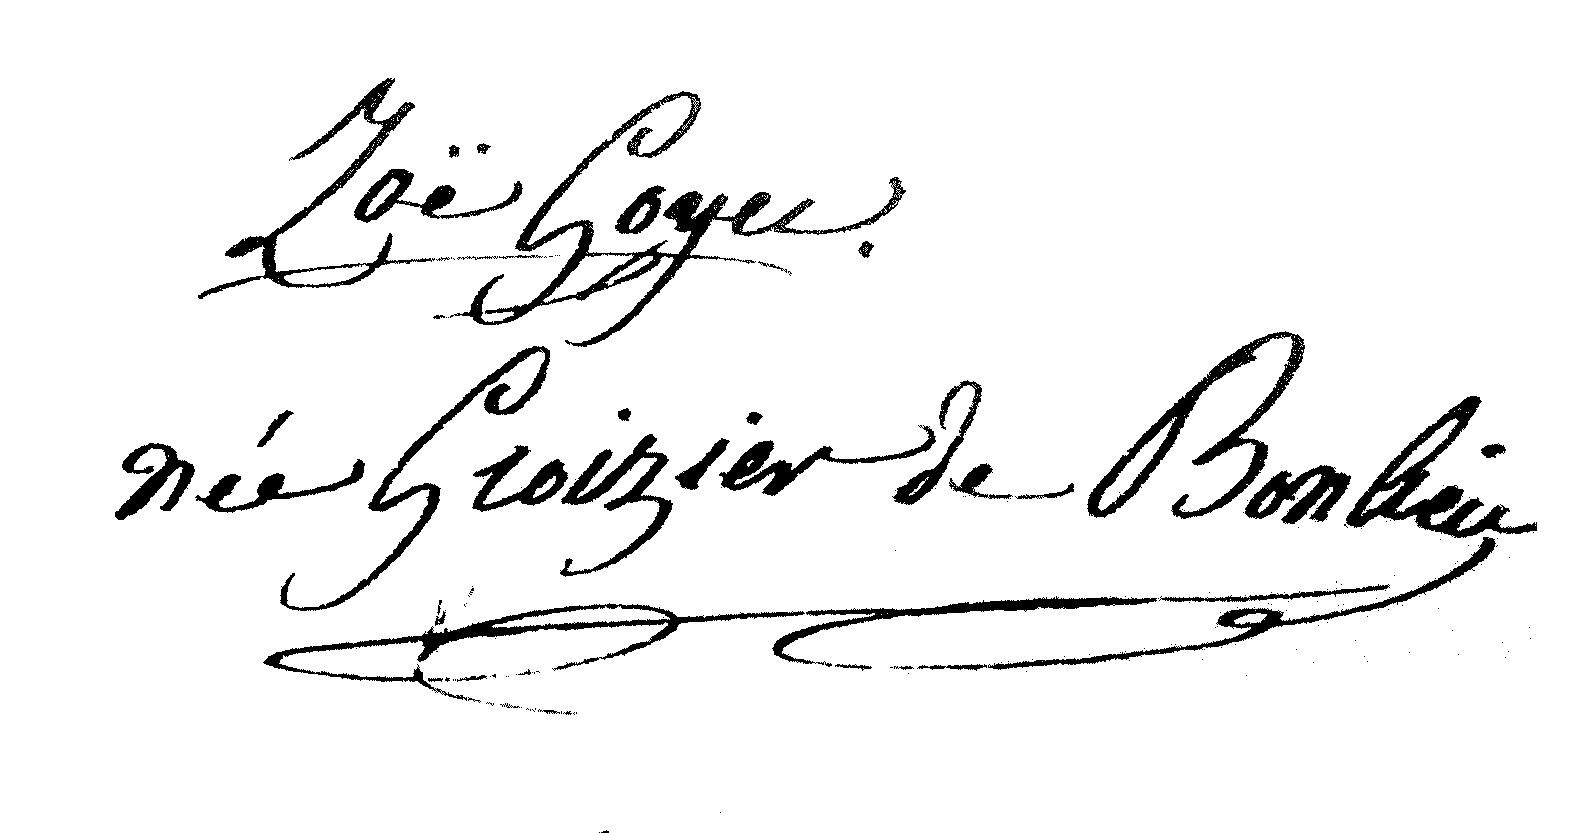 Zoë Goyer.
née Groizier de Bonlieu